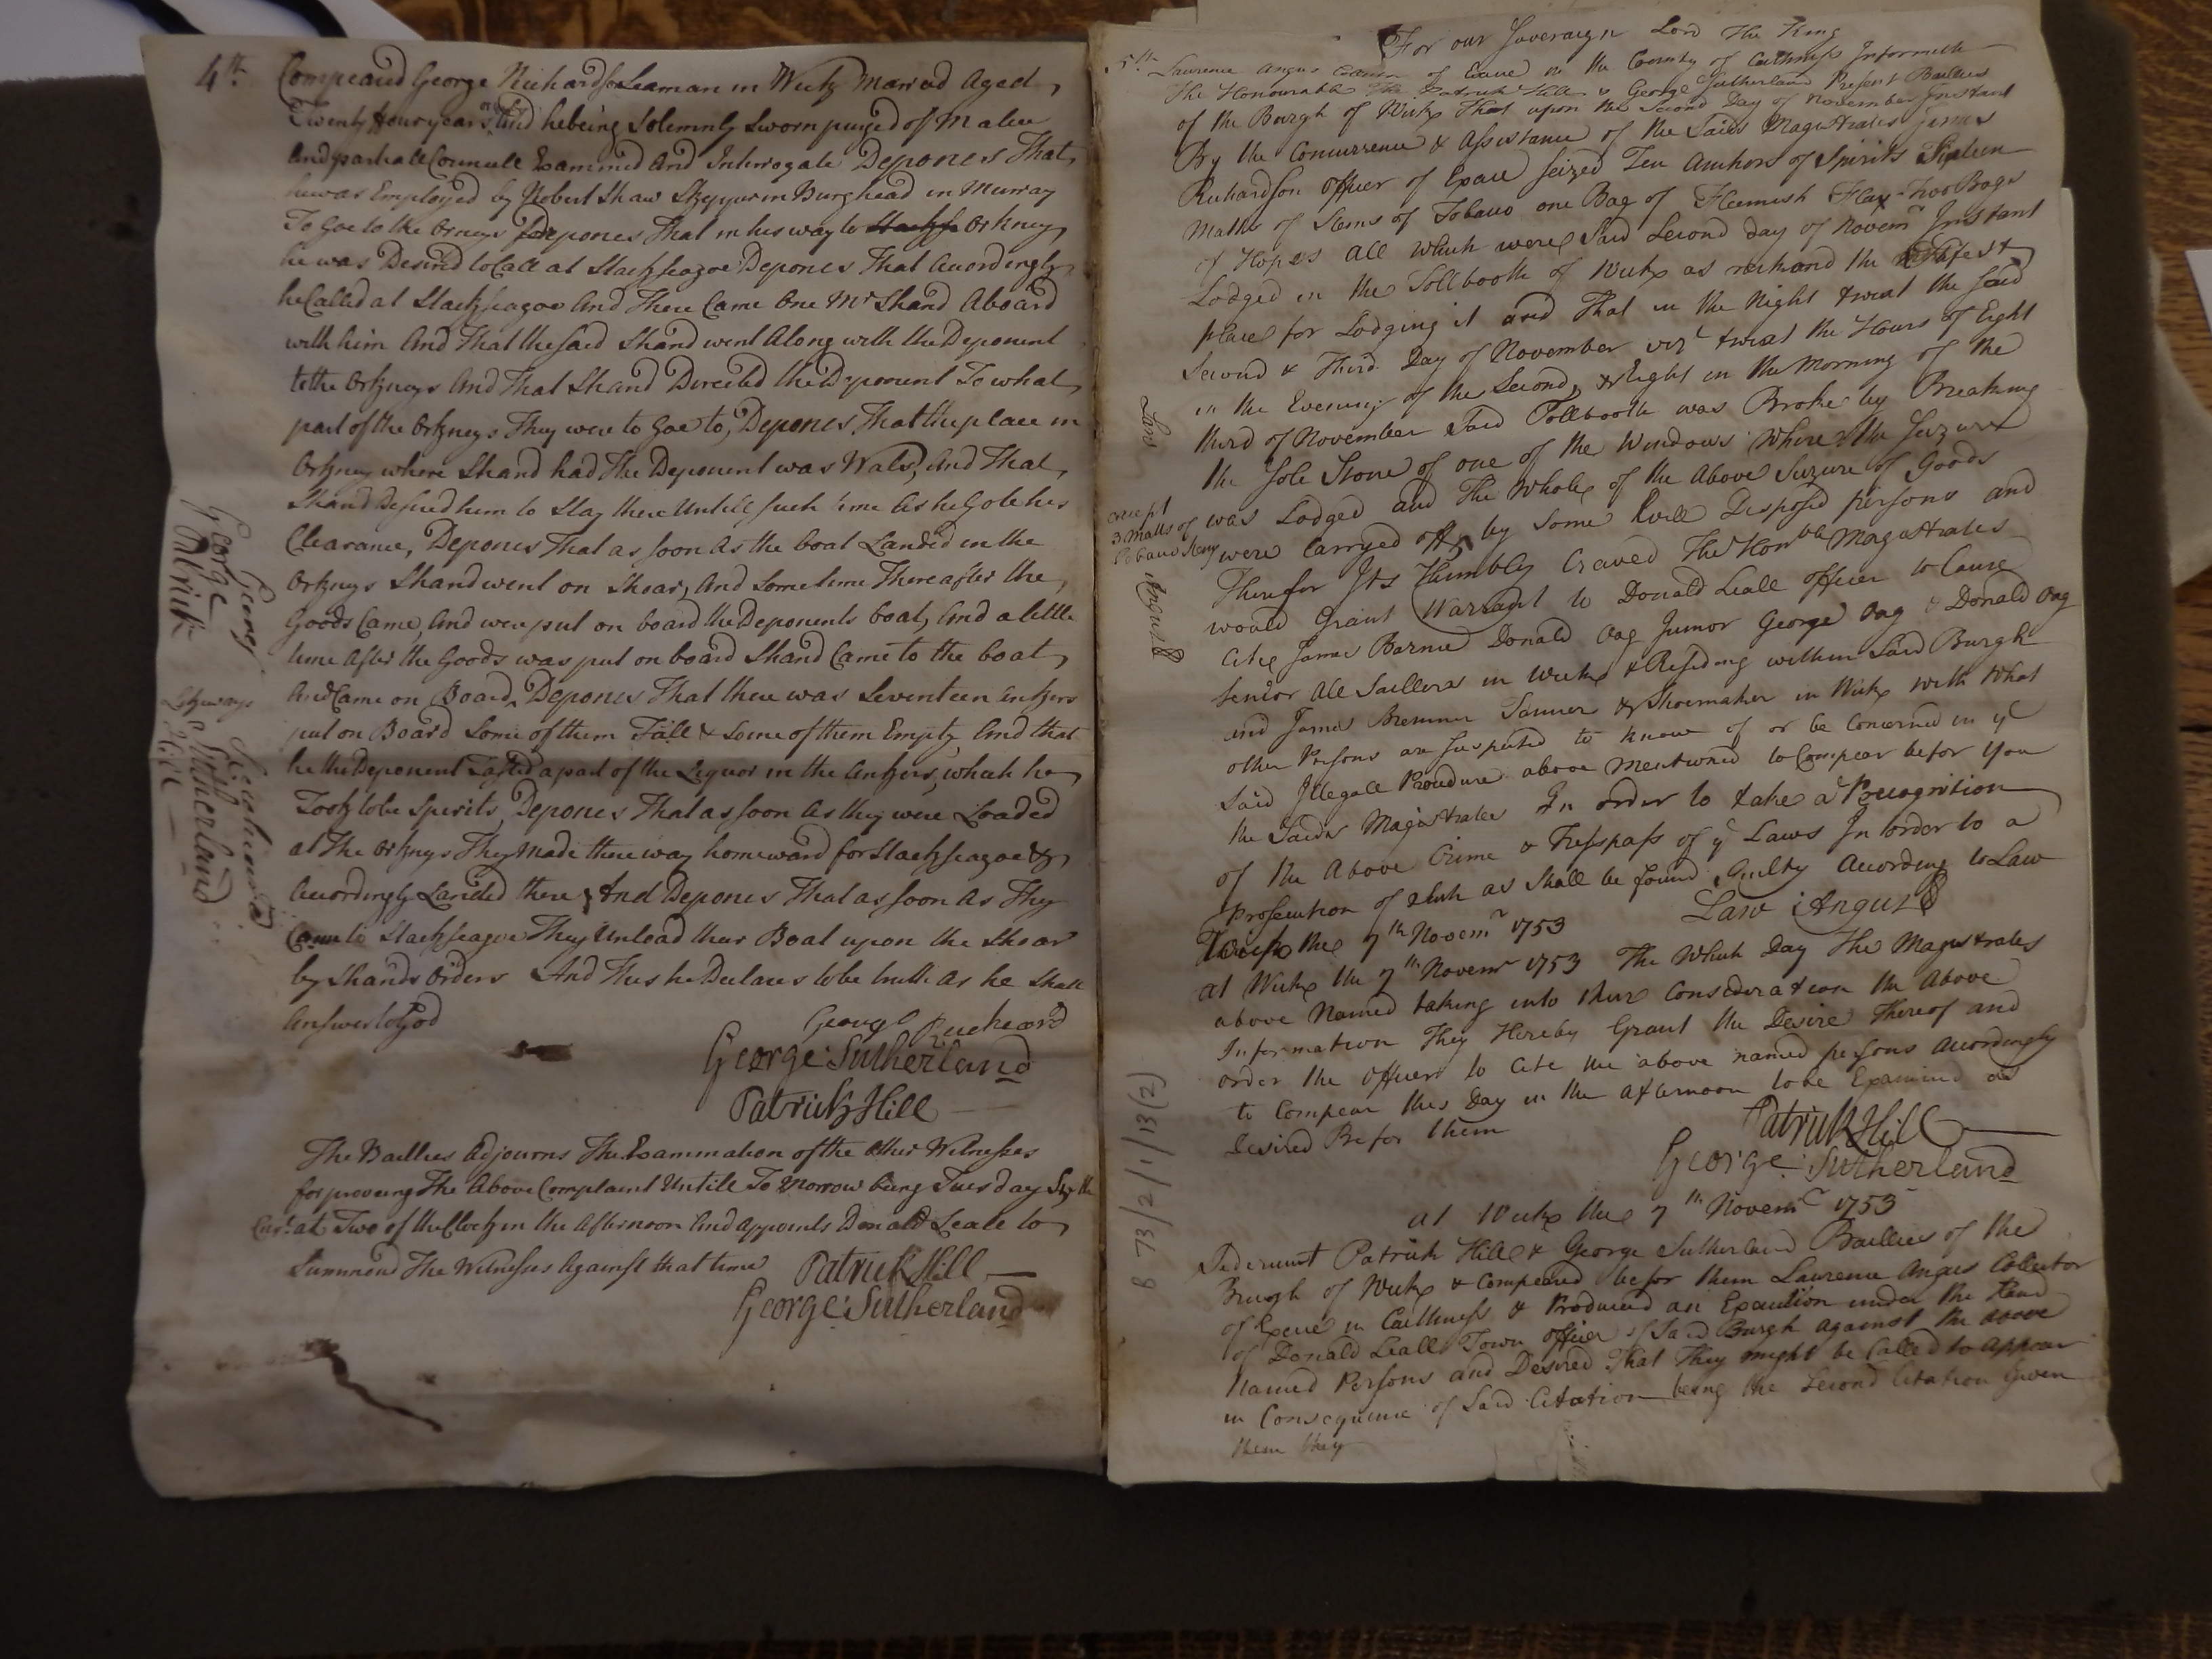 4th Compeared George Richard Seaman in Weik Married Aged
Twenty four years And he being Solemnly Sworn purged of Malice
And partiall Councill Examined And Interrogate Depones That
he was Employed by Robert Shaw Skepper in Burghead in Murray
To Goe to the Orkneys Depones That in his way to Orkney
he was Desired to Call at Stackseagoe Depones That Accordingly
he Called at Stackseagoe And There Came One Mr Shand Aboard
with him And That the said Shand went Along with the Deponent
to the Orkneys And That Shand Directed the Deponent To what
part of the Orkneys They were to Goe to, Depones That the place in
Orkney where Shand had The Deponent was Walls, And That
Shand Desired him to Stay there Untill such time As he Gote his
Clearance, Depones That as soon As the boat Landed in the
Orkneys Shand went on Shoar, And Sometime Thereafter the
Goods Came, And were put on board the Deponents boat, And a little
time After the Goods was put on board Shand Came to the boat
And Came on Board, Depones That there was Seventeen Ankers
put on Board Some of them Full & Some of them Empty And that
he the Deponent Tasted a part of the Liquor in the Ankers, which he
Took to be Spirits, Depones That as soon As they were Loaded
at The Orkneys They Made there way homeward for Stackseagoe &
Accordingly Landed there And Depones That as soon As They
Came to Stackseagoe They Unload their Boat upon the Shoar
by Shands Orders And This he Declares to be truth As he Shall
Answer to God
George Richard
George Sutherland
Patrick Hill
The Baillies Adjourns The Examination of the Other Witnesses
for proveing The Above Complaint Untill To Morrow being Tuesday Sixth
Curt. at Two of the Clock in the Afternoon And Appoints Donald Leall to
Summond The Witnesses Against that time
Patrick Hill
George Sutherland
George
George Sutherland
Patrick Hill
For our Soveraign Lord The King
5th Laurence Angus of Excise in the County of Caithness Informeth
The Honourable Patrick Hill & George Sutherland Present Baillies
of the Burgh of Wick That upon the Second Day of November Instant
By the Concurrence & Assistance of the Saids Magistrates James
Richardson Officer of Excise Seized Ten Ankors of Spirits Sixteen
Matts of Stems of Tobacco one Bag of Fleemish Flax Two Bags
of Hopes All Which were Said Second day of Novemr Instant
Lodged in the Tollbooth of Wick as the Safest
place for Lodging it and That in the Night twixt the said
Second & Third Day of November vizt twixt the Hours of Eight
in the Evening of the Second, & Eight in the Morning of the
third of November Said Tollbooth was Broke by Breaking
the Sole Stone of one of the Windows Where the Seizure
was Lodged and The Whole of the Above Seizure of Goods
except
3 Matts of
Tobacco Stems
were Carryed off by Some Evill Disposed persons and
Therefor Its Humbly Craved The Honble Magistrates
would Grant Warrand to Donald Leall officer to Cause
Cite James Barnie Donald Oag Junior George Oag & Donald Oag
Senior All Saillers in Wick & Residing within Said Burgh
and James Bremner Tanner & Shoemaker in Wick with What
other Persons are Suspected to know of or be Concerned in ye
Said Illegall Procedure above Mentioned to Compear befor You
the Saids Magistrates In order to take a Precognition
of the Above Crime & Tresspass of ye Laws In order to a
Prosecution of Such as Shall be found Guilty According to Law
Law Angus
Wick the 7th Novemr 1753
Law
Angus
At Wick the 7th Novemr 1753 The Which Day The Magistrates
above Named taking into their Consideration the Above
Information They Hereby Grant the Desire Thereof and
order the Officer to Cite the above named persons Accordingly
to Compear this Day in the Afternoon to be Examined as
Desired Befor them
Patrick Hill
George Sutherland
At Wick the 7th Novemr 1753
Sederunt Patrick Hill & George Sutherland Baillies of the
Brugh of Wick & Compeared befor them Laurence Angus Collector
of Excise in Caithness & Produced an Execution under the Hand
of Donald Leall Town officer of Said Burgh against the above
Named Persons and Desired That They might be Called to Appear
in Consequence of Said Citation being the Second Citation Given
them they
B 73/2/1/13(2)